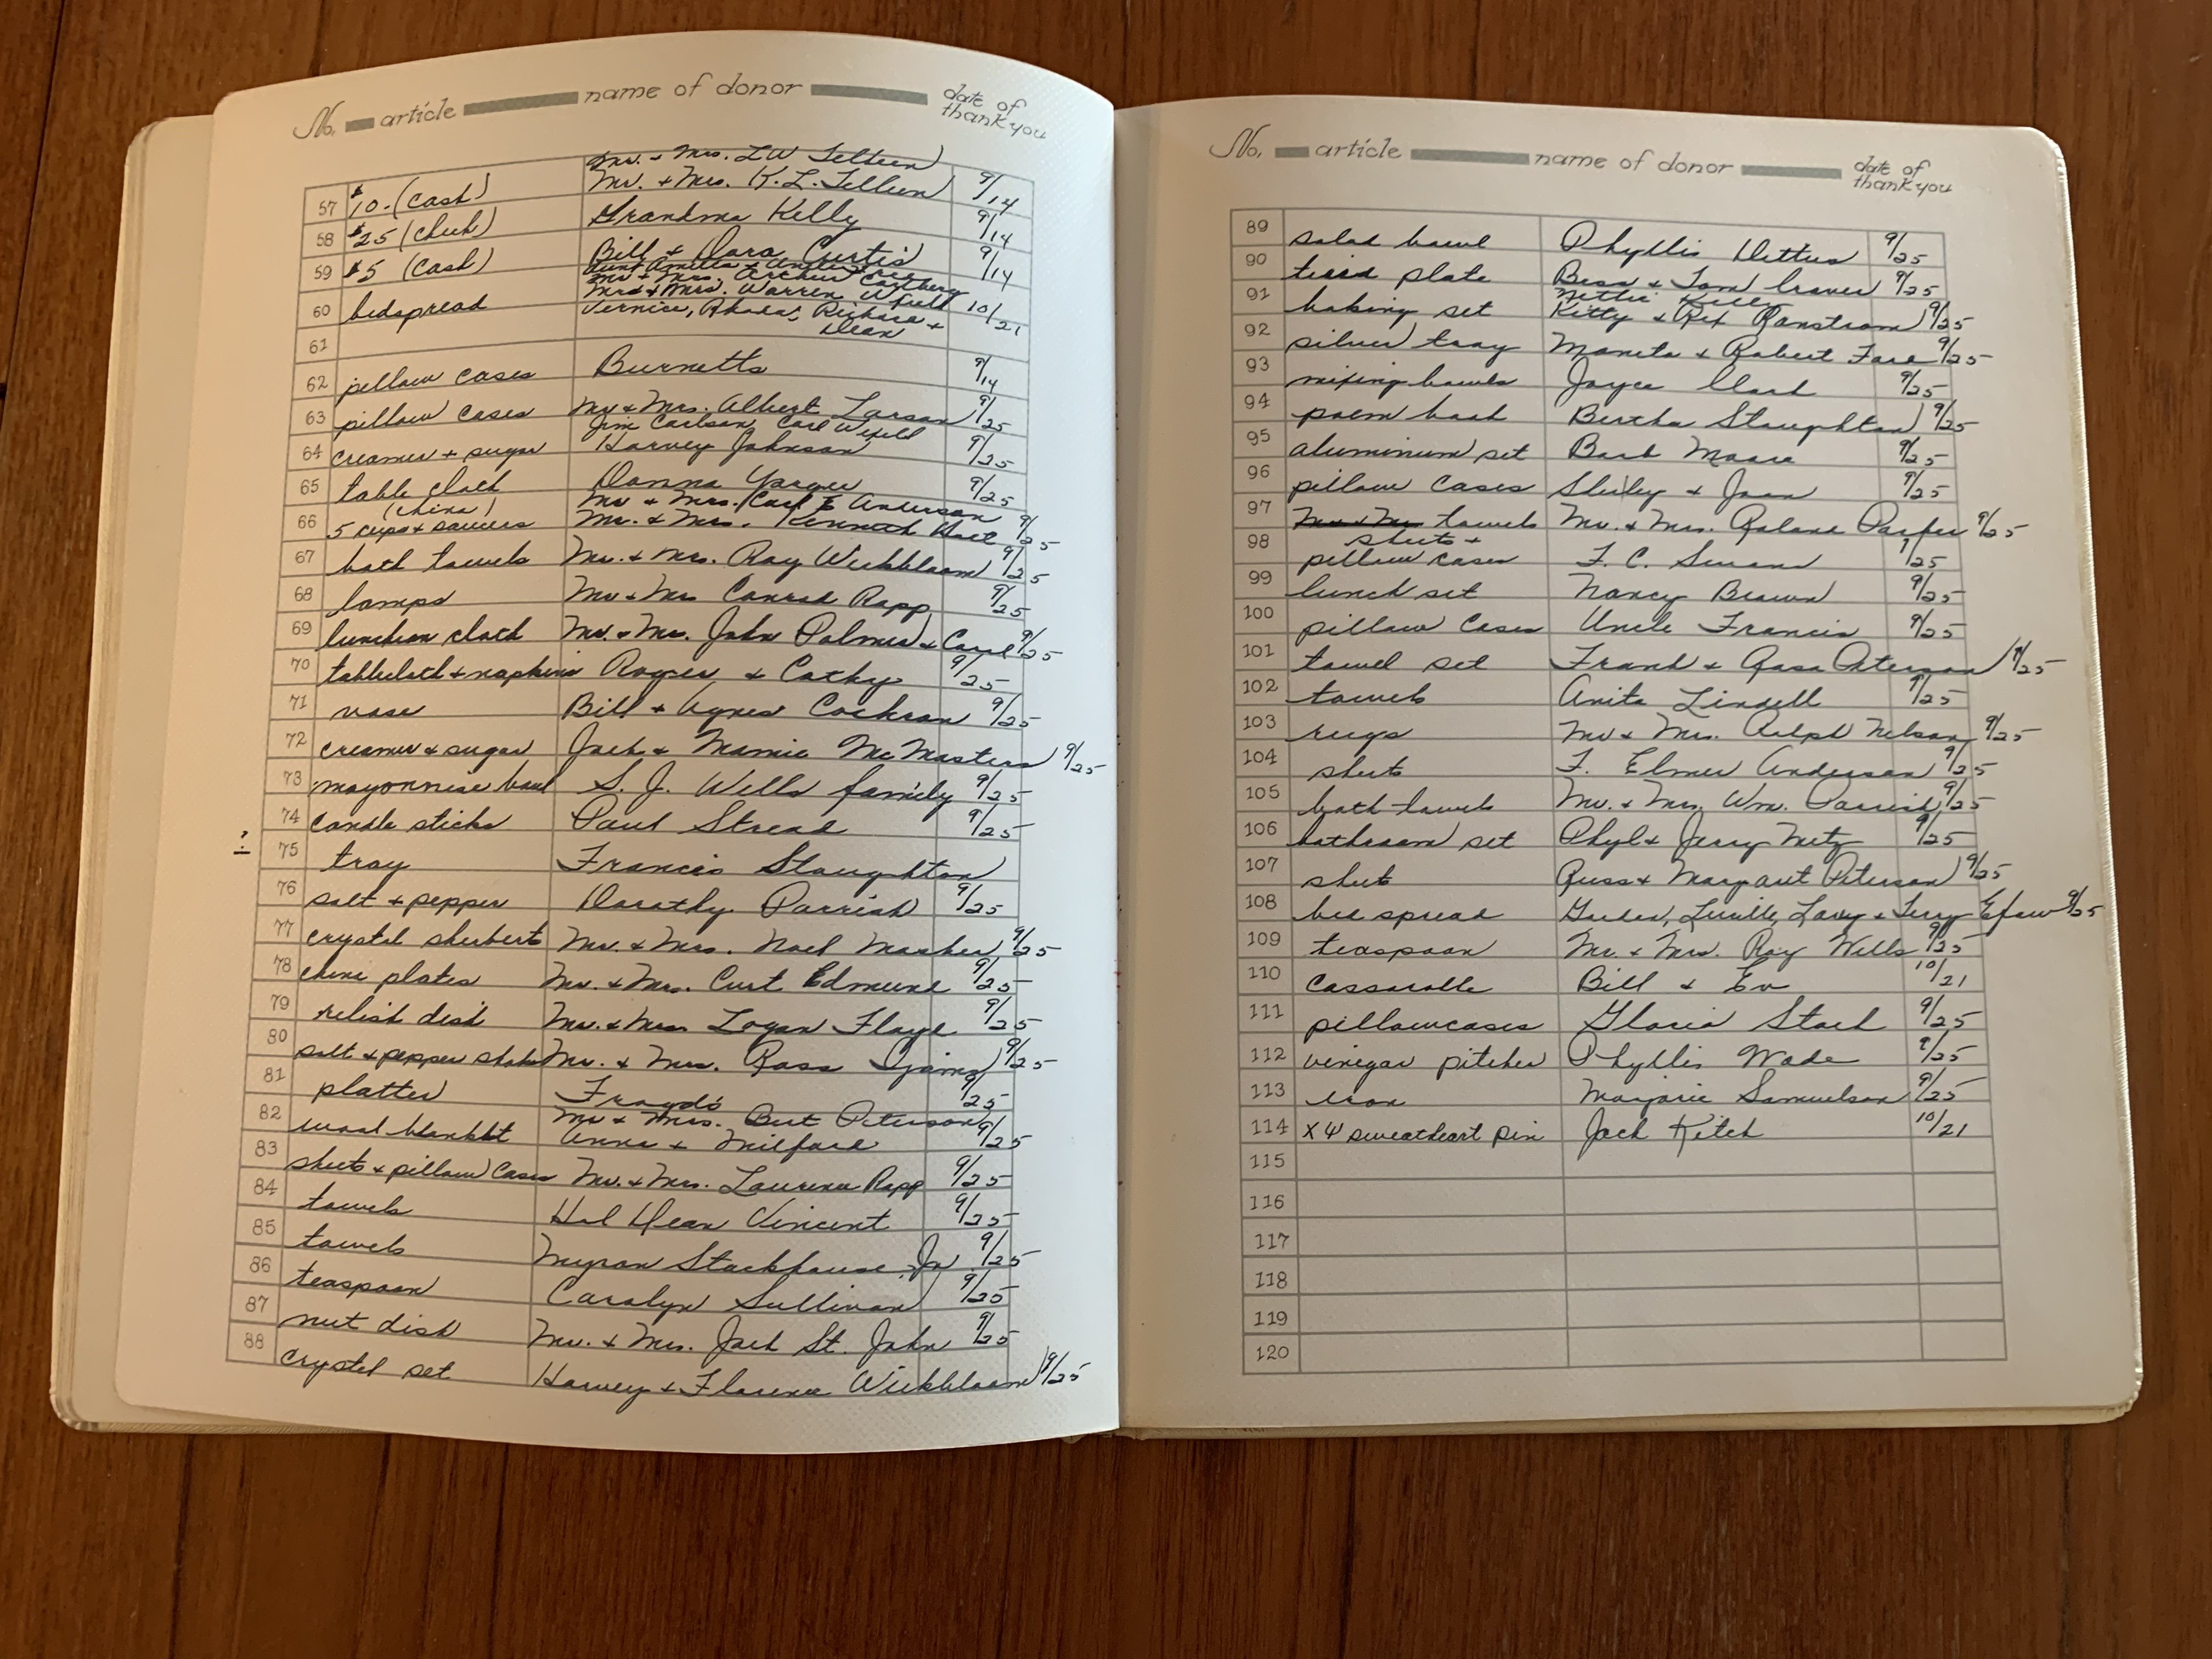 No. article name of donor date of thank you
Mr. + Mrs. L W Telleen
57 $10. (cash) Mr. + Mrs. K. L. Telleen 9/14
58 $25 (check) Grandma Kelly 9/14
59 $5 (cash) Bill + Dora Curtis 9/14
Mr + Mrs. Arthur Carlberg
60 bedspread Mr + Mrs. Warren W 10/21
Vernice, Rhoda, Richard +
Dean
61
62 pillow cases Burnetts 9/14
63 pillow cases Mr + Mrs. Albert Larson 9/25
Jim Carlson, Carl
64 creamer + sugar Harvey Johnson 9/25
65 table cloth Donna Yager 9/25
(china) Mr + Mrs. Carl E Anderson
66 5 cups + saucers Mr. + Mrs. Kenneth 9/25
67 bath towels Mr. + Mrs. Ray Wickbloom 9/25
68 lamps Mr + Mrs Conrad Rapp 9/25
69 luncheon cloth Mr. + Mrs. John Palmer + Carol 9/25
70 tablecloth + napkins Roger + Cathy 9/25
71 vase Bill + Agnes Cochran 9/25
72 creamer + sugar Jack + Mamie McMasters 9/25
73 mayonnise bowl S. J. Wells family 9/25
74 candle sticks Paul Stread 9/25
?
75 tray Francis Staughton
76 salt + pepper Dorothy Parrish 9/25
77 crystal sherberts Mr. + Mrs. Noel Mosher 9/25
78 china plates Mr. + Mrs. Curt Edmund 9/25
79 relish dish Mr. + Mrs. Logan Floyd 9/25
80 salt + pepper Mr. + Mrs. Ross 9/25
81 platter 9/25
Mr + Mrs. Bert Peterson
82 wool blanket Anna + Milford 9/25
83 sheets + pillow cases Mr. + Mrs. Laurence Rapp 9/25
84 towels Hal Dean Vincent 9/25
85 towels Myron Stackhouse, Jr. 9/25
86 teaspoon Carolyn Sullivan 9/25
87 nut dish Mr. + Mrs. Jack St. John 9/25
88 crystal set Harvey + Florence Wickbloom 9/25
No. article name of donor date of thank you
89 salad bowl Phyllis Dettus 9/25
90 plate Bess + Tom Craver 9/25
Nettie Kelly
91 baking set Kitty + Rex Ranstrom 9/25
92 silver tray Maneta + Robert 9/25
93 mixing bowls Joyce Clark 9/25
94 poem book Bertha Staughton 9/25
95 aluminum set Barb Moore 9/25
96 pillow cases Shirley + Joan 9/25
97 towels Mr. + Mrs. Roland 9/25
sheets +
98 pillow cases F. C. Swans 9/25
99 lunch set Nancy Brown 9/25
100 pillow cases Uncle Francis 9/25
101 towel set Frank + Rosa Peterson 9/25
102 towels Anita Lindell 9/25
103 rugs Mr + Mrs. Ralph Nelson 9/25
104 sheets F. Elmer Anderson 9/25
105 bath towels Mr. + Mrs. Wm. Parrish 9/25
106 bathroom set Phyl + Jerry Metz 9/25
107 sheets Russ + Margaret Peterson 9/25
108 bed spread Lucille, Larry + Terry Efaw 9/25
109 teaspoon Mr. + Mrs. Roy Wells 9/25
110 cassarolle Bill + Ev 10/21
111 pillowcases Gloria Stack 9/25
112 vinegar pitcher Phyllis Wade 9/25
113 iron Marjorie Samuelson 9/25
114 X Ψ sweetheart pin Jack Kitch 10/21
115
116
117
118
119
120